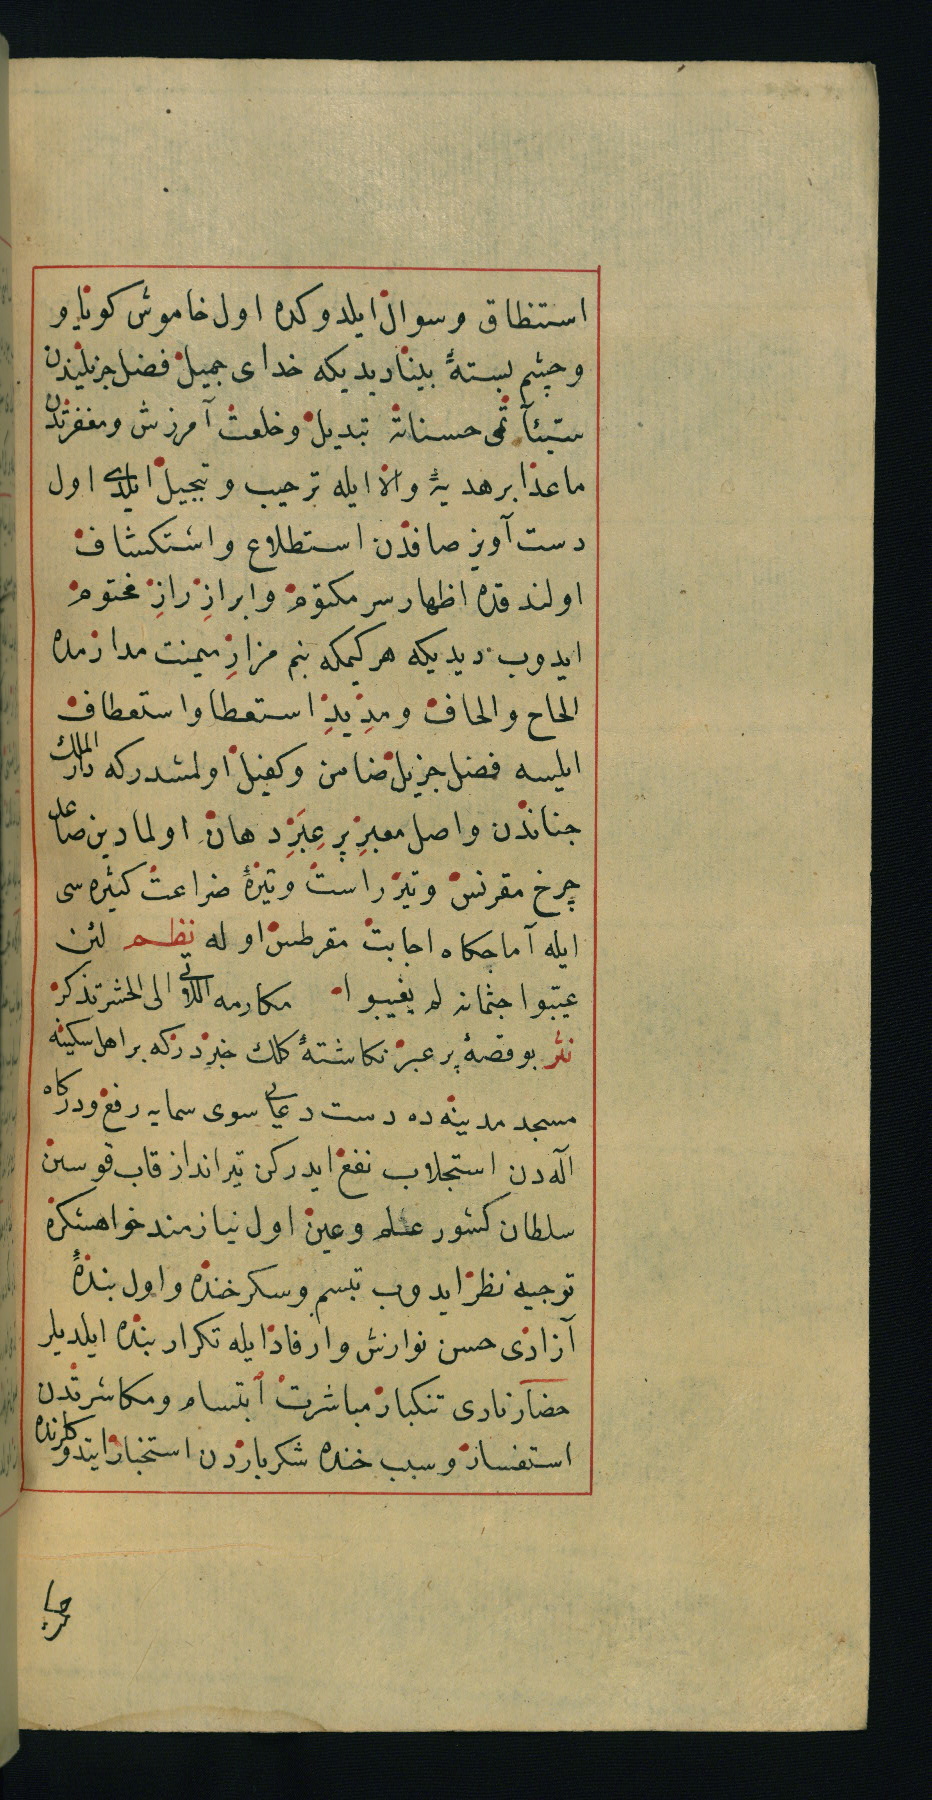 استنطاق و سوال ایلدوكده اول خاموش كویا و
و چشم بستهٔ بینا دیدیكه خدای جمیل فضل جزیلیندن
سیئآتمی حسناته تبدیل و خلعت آمرزش و مغفرتدن
ماعدا بر هدیهٔ والا ایله ترحیب و تبجیل ایلدی اول
دست آویز صافدن استطلاع و استكشاف
اولندقده اظهار سر مكتوم و ابراز راز مختوم
ایدوب دیدیكه هر كیمكه بنم مزار میمنت مدارمده
الحاح و الحاف و مدید استعطا و استعطاف
ایلیسه فضل جزیل ضامن و كفیل اولمشدركه دار الملك
جناندن واصل معبر پر عبر دهان اولمادین صاعد
چرخ مقرنس و تیر راست وتیرهٔ ضراعت كثیره سی
ایله آماجكاه اجابت مقرطس اوله نظم لئن
غیبوا جثمانه لم یغیبوا مكارمه اللاتی الی الحشر تذكر
نثر بو قصهٔ پر عبر نكاشتهٔ كلك خبردركه بر اهل سكینه
مسجد مدینه ده دست دعایی سوی سمایه رفع و دركاه
الٓه دن استجلاب نفع ایدركن تیرانداز قاب قوسین
سلطان كشور علم و عین اول نیازمند خواهشكره
توجیه نظر ایدوب تبسم و سكرخنده و اول بندهٔ
آزادی حسن نوازش و ارفاد ایله تكرار بنده ایلدیلر
حضار ناری تنكبار مباشرت ابتسام و مكاشرتدن
استفسار و سبب خنده شكرباردن استخبار ایتدوكلرنده